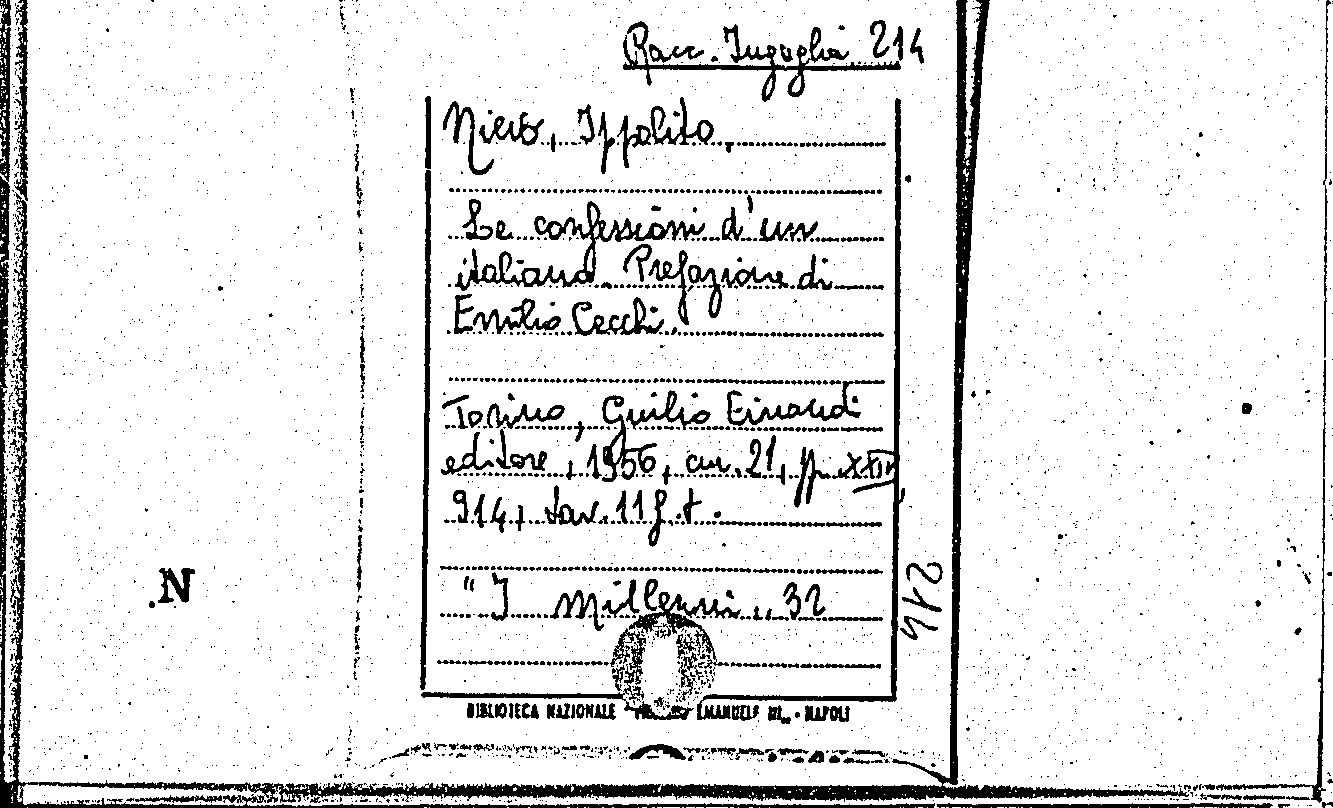 Racc. Ingoglia 214
Nievo, Ippolito.
Le confessioni d'un
italiano. Prefazione di
Emilio Cecchi.
Torino, Giulio Einaudi
editore, 1956, cm. 21, pp. XXIII,
914, tav. 11 f.t.
"I millenni" 32
N
214
BIBLIOTECA NAZIONALE EMANUELE III" - NAPOLI